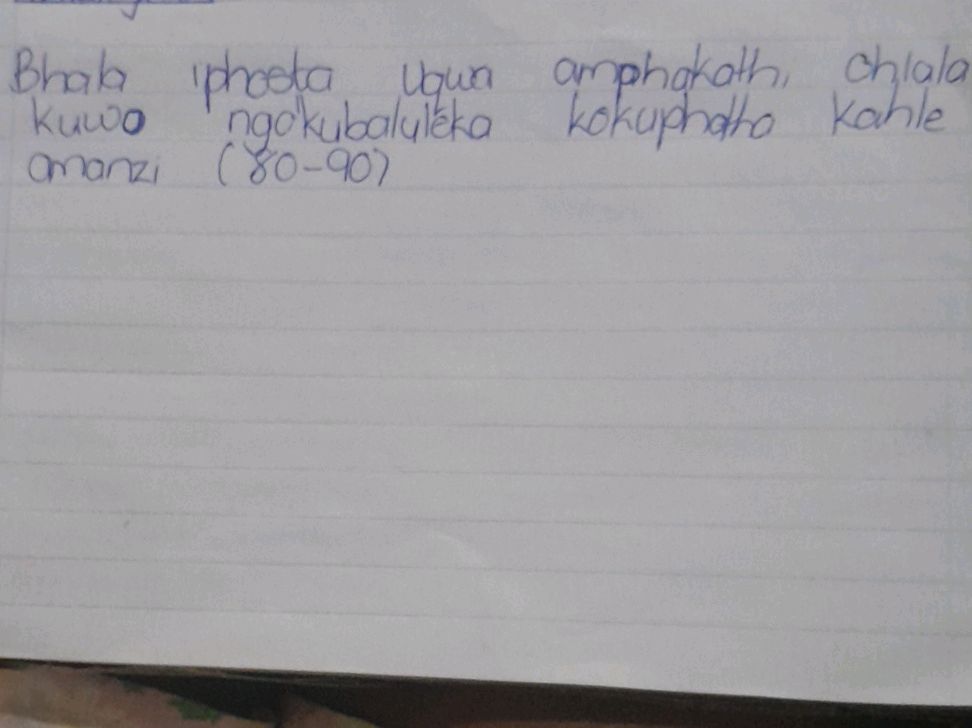 Bhala iphosta ugwa amphakathi chlala
kuwo ngokubaluleka kokuphatha kahle
amanzi (80-90)